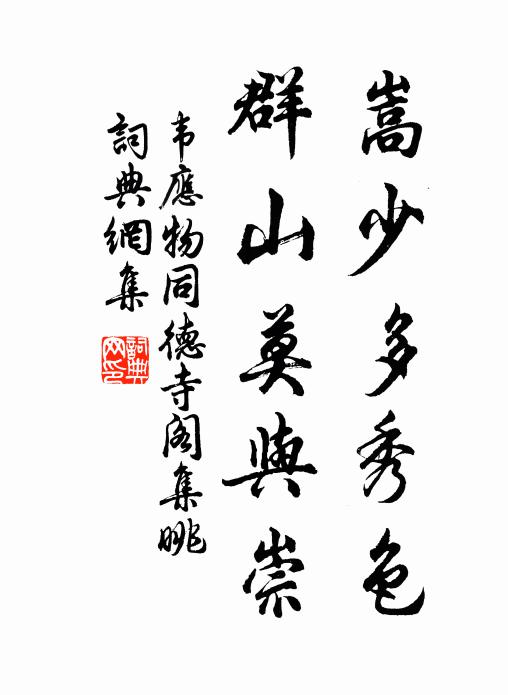 嵩少多秀色
群山莫與崇
韦應物同德寺阁集眺
詞典網集
詞典网印